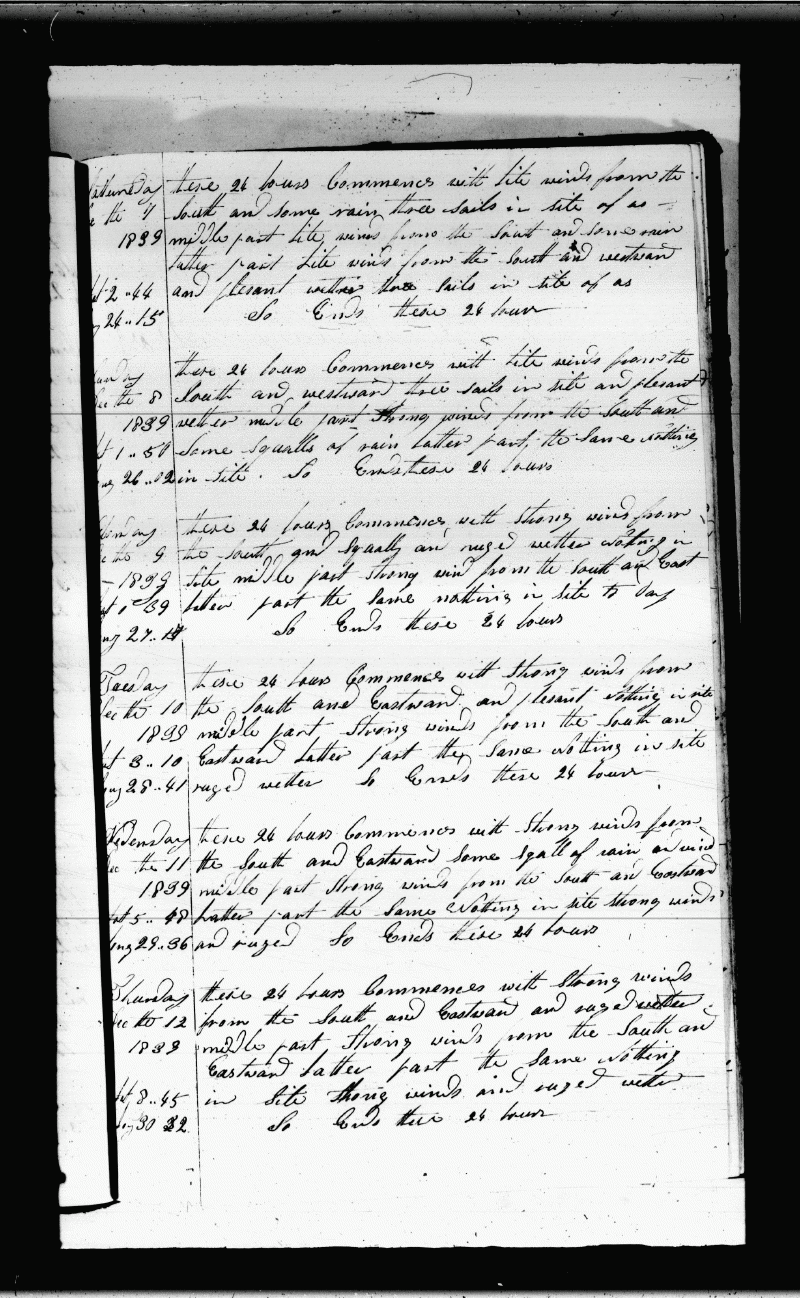 Saturday these 24 hours Commences with lite winds from the
Dec the 7 South and some rain three sails in site of as
1839 middle part lite winds from the South and some rain
latter part Lite winds from the South and westward
Lat 2 .. 44 and plesant wether three Sails in site of as
Long 24 .. 15 So Ends these 24 hours
Sunday these 24 hours Commences with lite winds from the
Dec the 8 South and westward three sails in site and plesant
1839 wether middle part Strong winds from the South and
Lat 1 .. 50 Some Squalls of rain Latter part, the Same Nothing
Long 26 .. 02 in Site . So Ends these 24 hours
Monday these 24 hours Commences with Strong winds from
Dec the 9 the South and Squally and ruged wether Nothing in
1839 Site middle part Strong wind from the South and East
Lat 0 39 latter part the Same nothing in site to day
Long 27 .. 14 So Ends these 24 hours
Tuesday these 24 hours Commences with Strong winds from
Dec the 10 the South and Eastward and plesant Nothing in site
1839 middle part Strong winds from the South and
Lat 3 .. 10 Eastward Latter part the Same Nothing in site
Long 28 .. 41 ruged wether So Ends these 24 hours
Wedensday these 24 hours Commences with Strong winds from
Dec the 11 the South and Eastward Some Sqall of rain and wind
1839 middle part Strong winds from the South and Eastward
Lat 5 .. 48 Latter part the Same Nothing in site Strong winds
Long 29 .. 36 and ruged So Ends these 24 hours
Thursday these 24 hours Commences with Strong winds
Dec the 12 from the South and Eastward and ruged wether
1839 middle part Strong winds from the South and
Eastward Latter part the Same Nothing
Lat 8 .. 45 in Site Strong winds and ruged wether
Long 30 32 So Ends these 24 hours